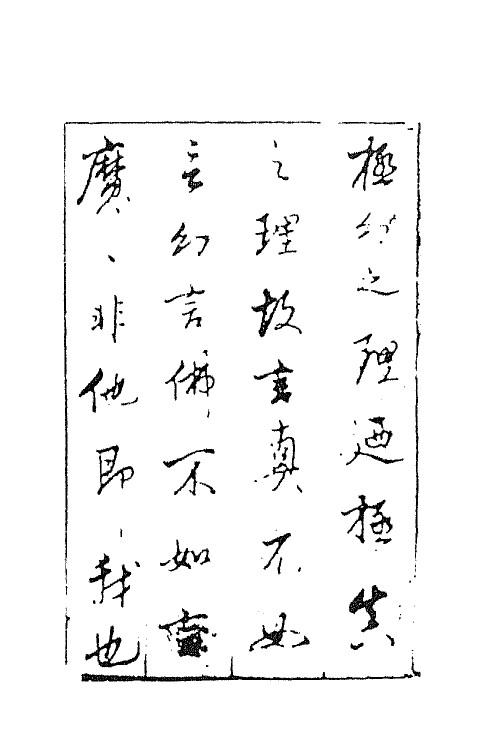 極幻之理廼極真
之理故言真不如
言幻言佛不如言
魔、非他即我也